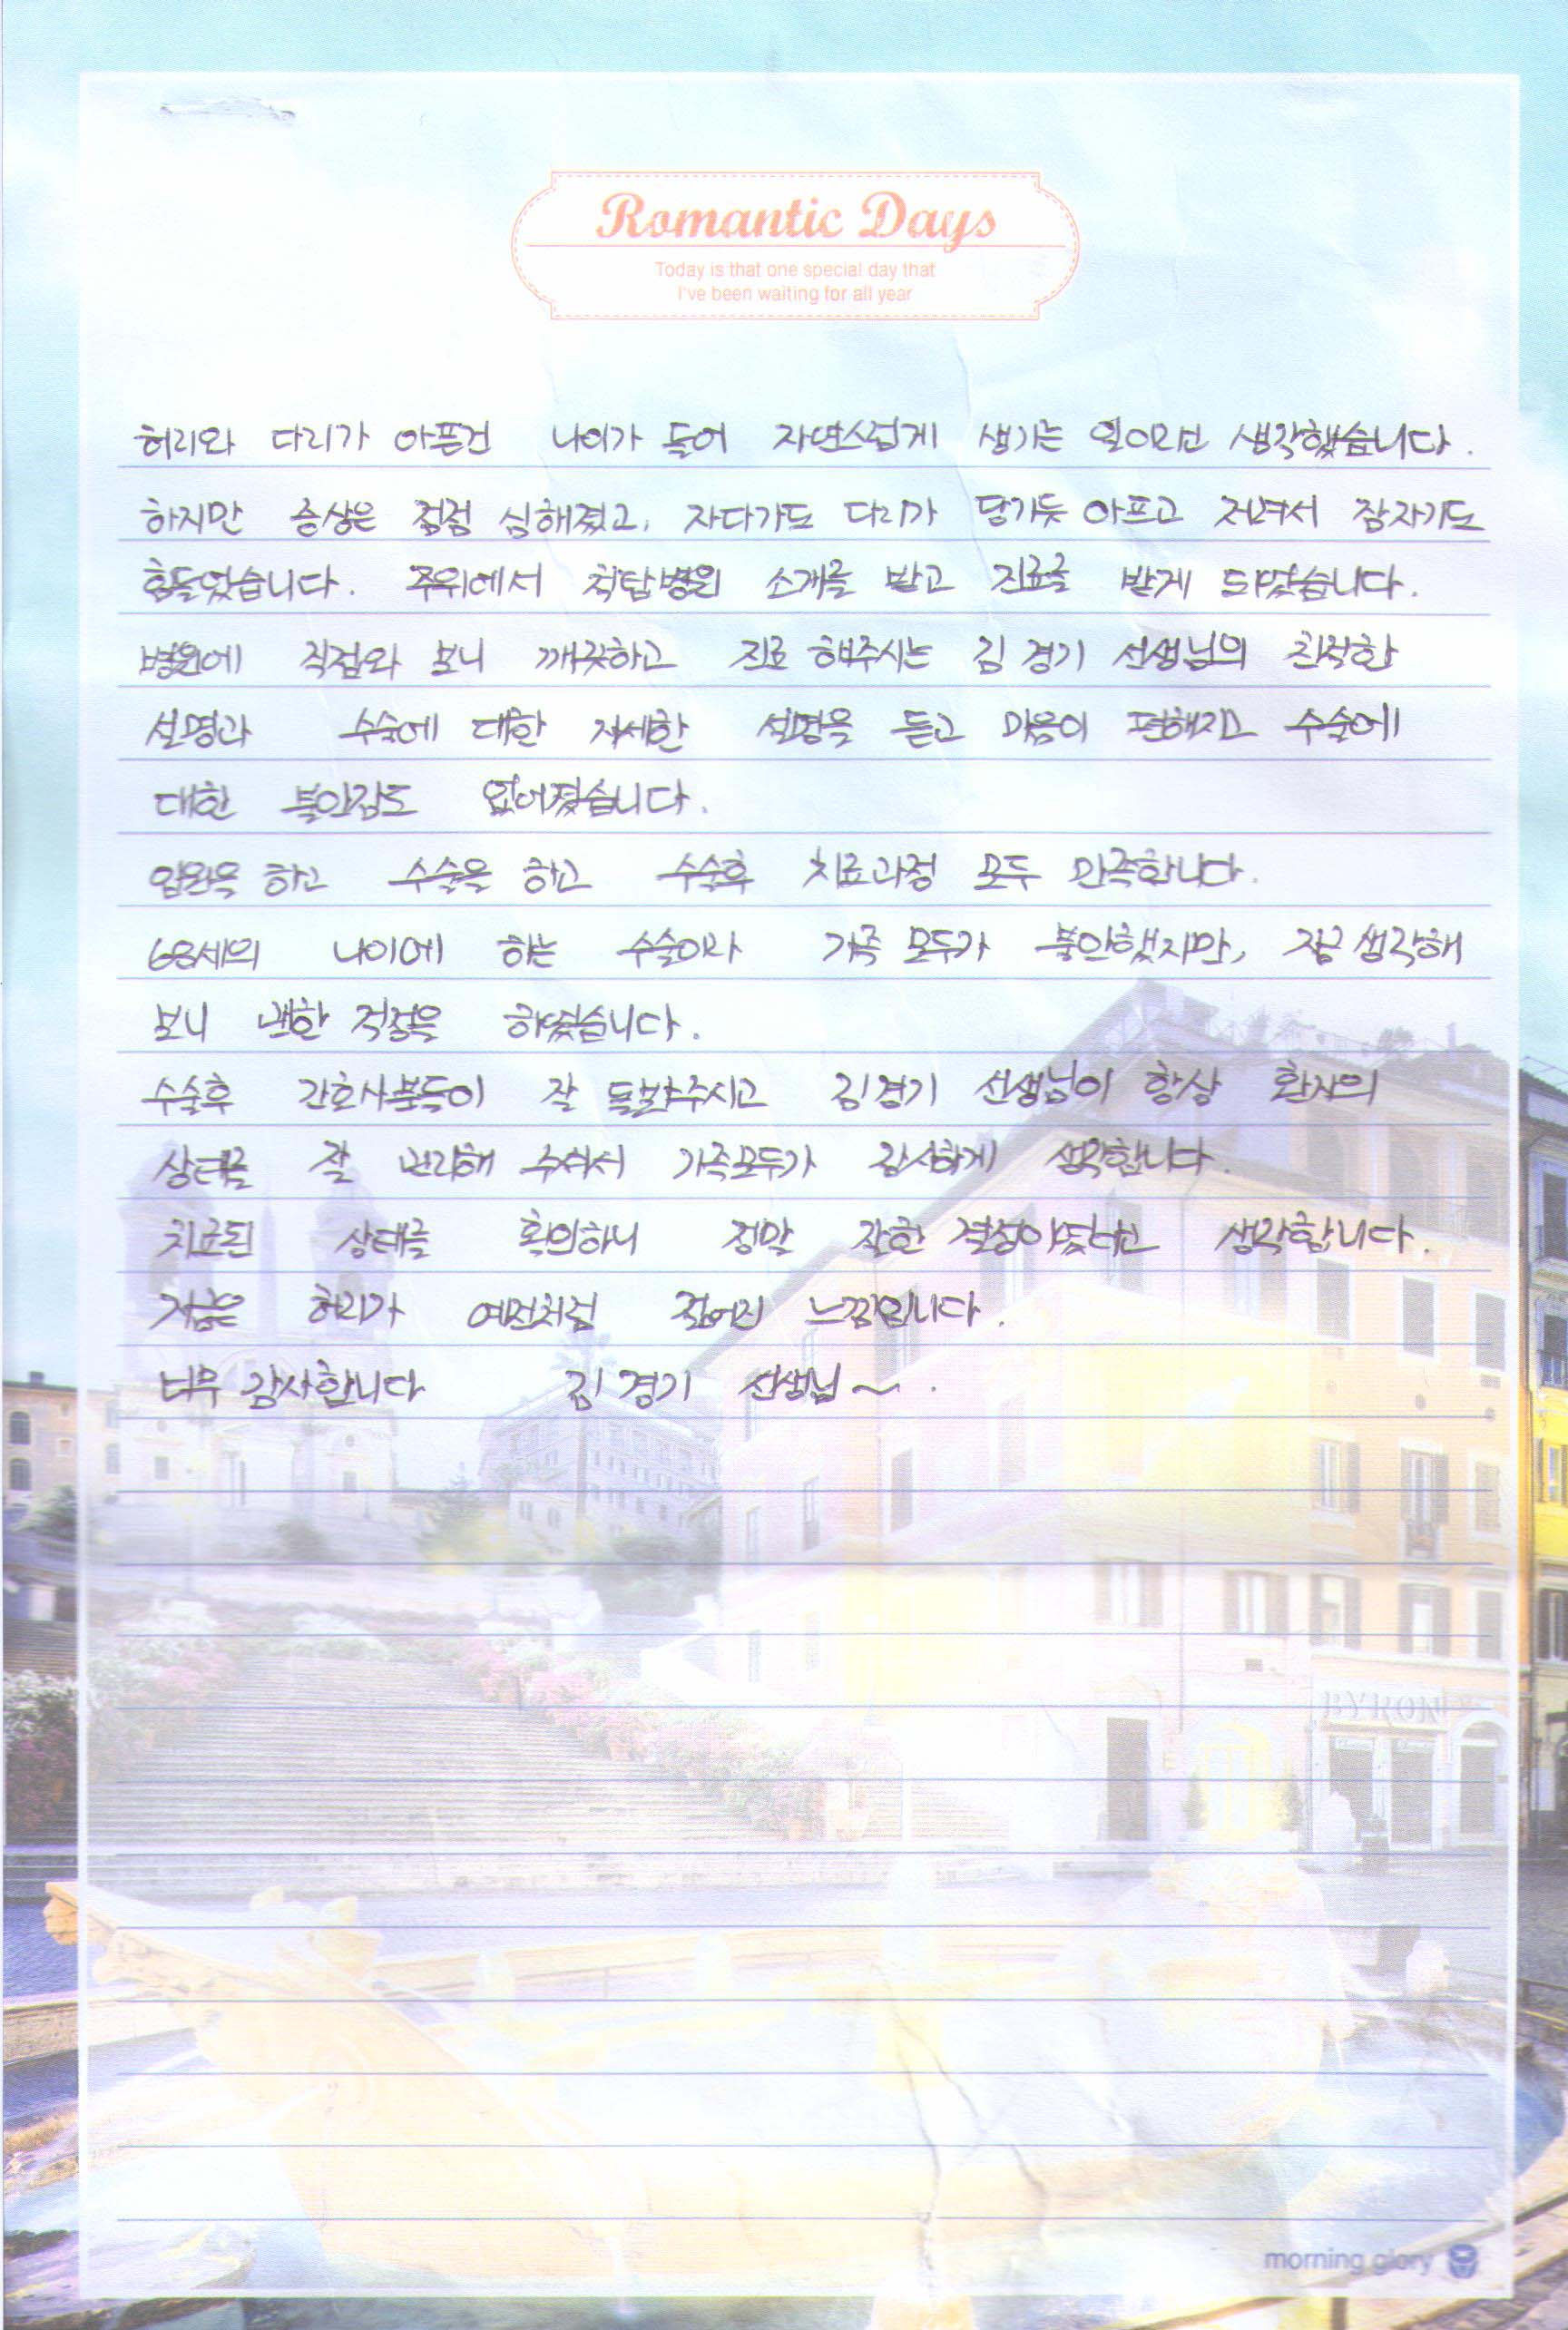 Romantic Days
Today is that one special day that
I've been waiting for all year
허리와 다리가 아픈건 나이가 들어 자연스럽게 생기는 일이라고 생각했습니다.
하지만 증상은 점점 심해졌고, 자다가도 다리가 당기듯 아프고 저려서 잠자기도
힘들었습니다. 주위에서 척탑병원 소개를 받고 진료를 받게 되었습니다.
병원에 직접와 보니 깨끗하고 진료 해주시는 김경기 선생님의 친절한
설명과 수술에 대한 자세한 설명을 듣고 마음이 편해지고 수술에
대한 불안감도 없어졌습니다.
입원을 하고 수술을 하고 수술후 치료과정 모두 만족합니다.
68세의 나이에 하는 수술이라 가족 모두가 불안했지만, 지금 생각해
보니 괜한 걱정을 하였습니다.
수술후 간호사분들이 잘 돌봐주시고 김경기 선생님이 항상 환자의
상태를 잘 관리해 주셔서 가족모두가 감사하게 생각합니다.
치료된 상태를 확인하니 정말 잘한 결정이었다고 생각합니다.
지금은 허리가 예전처럼 젊어진 느낌입니다.
너무 감사합니다 김경기 선생님~.
BYRON
morning glory